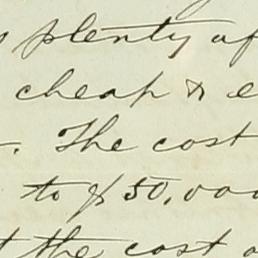 plenty of
cheap & e
. The cost
to $50,000
the cost